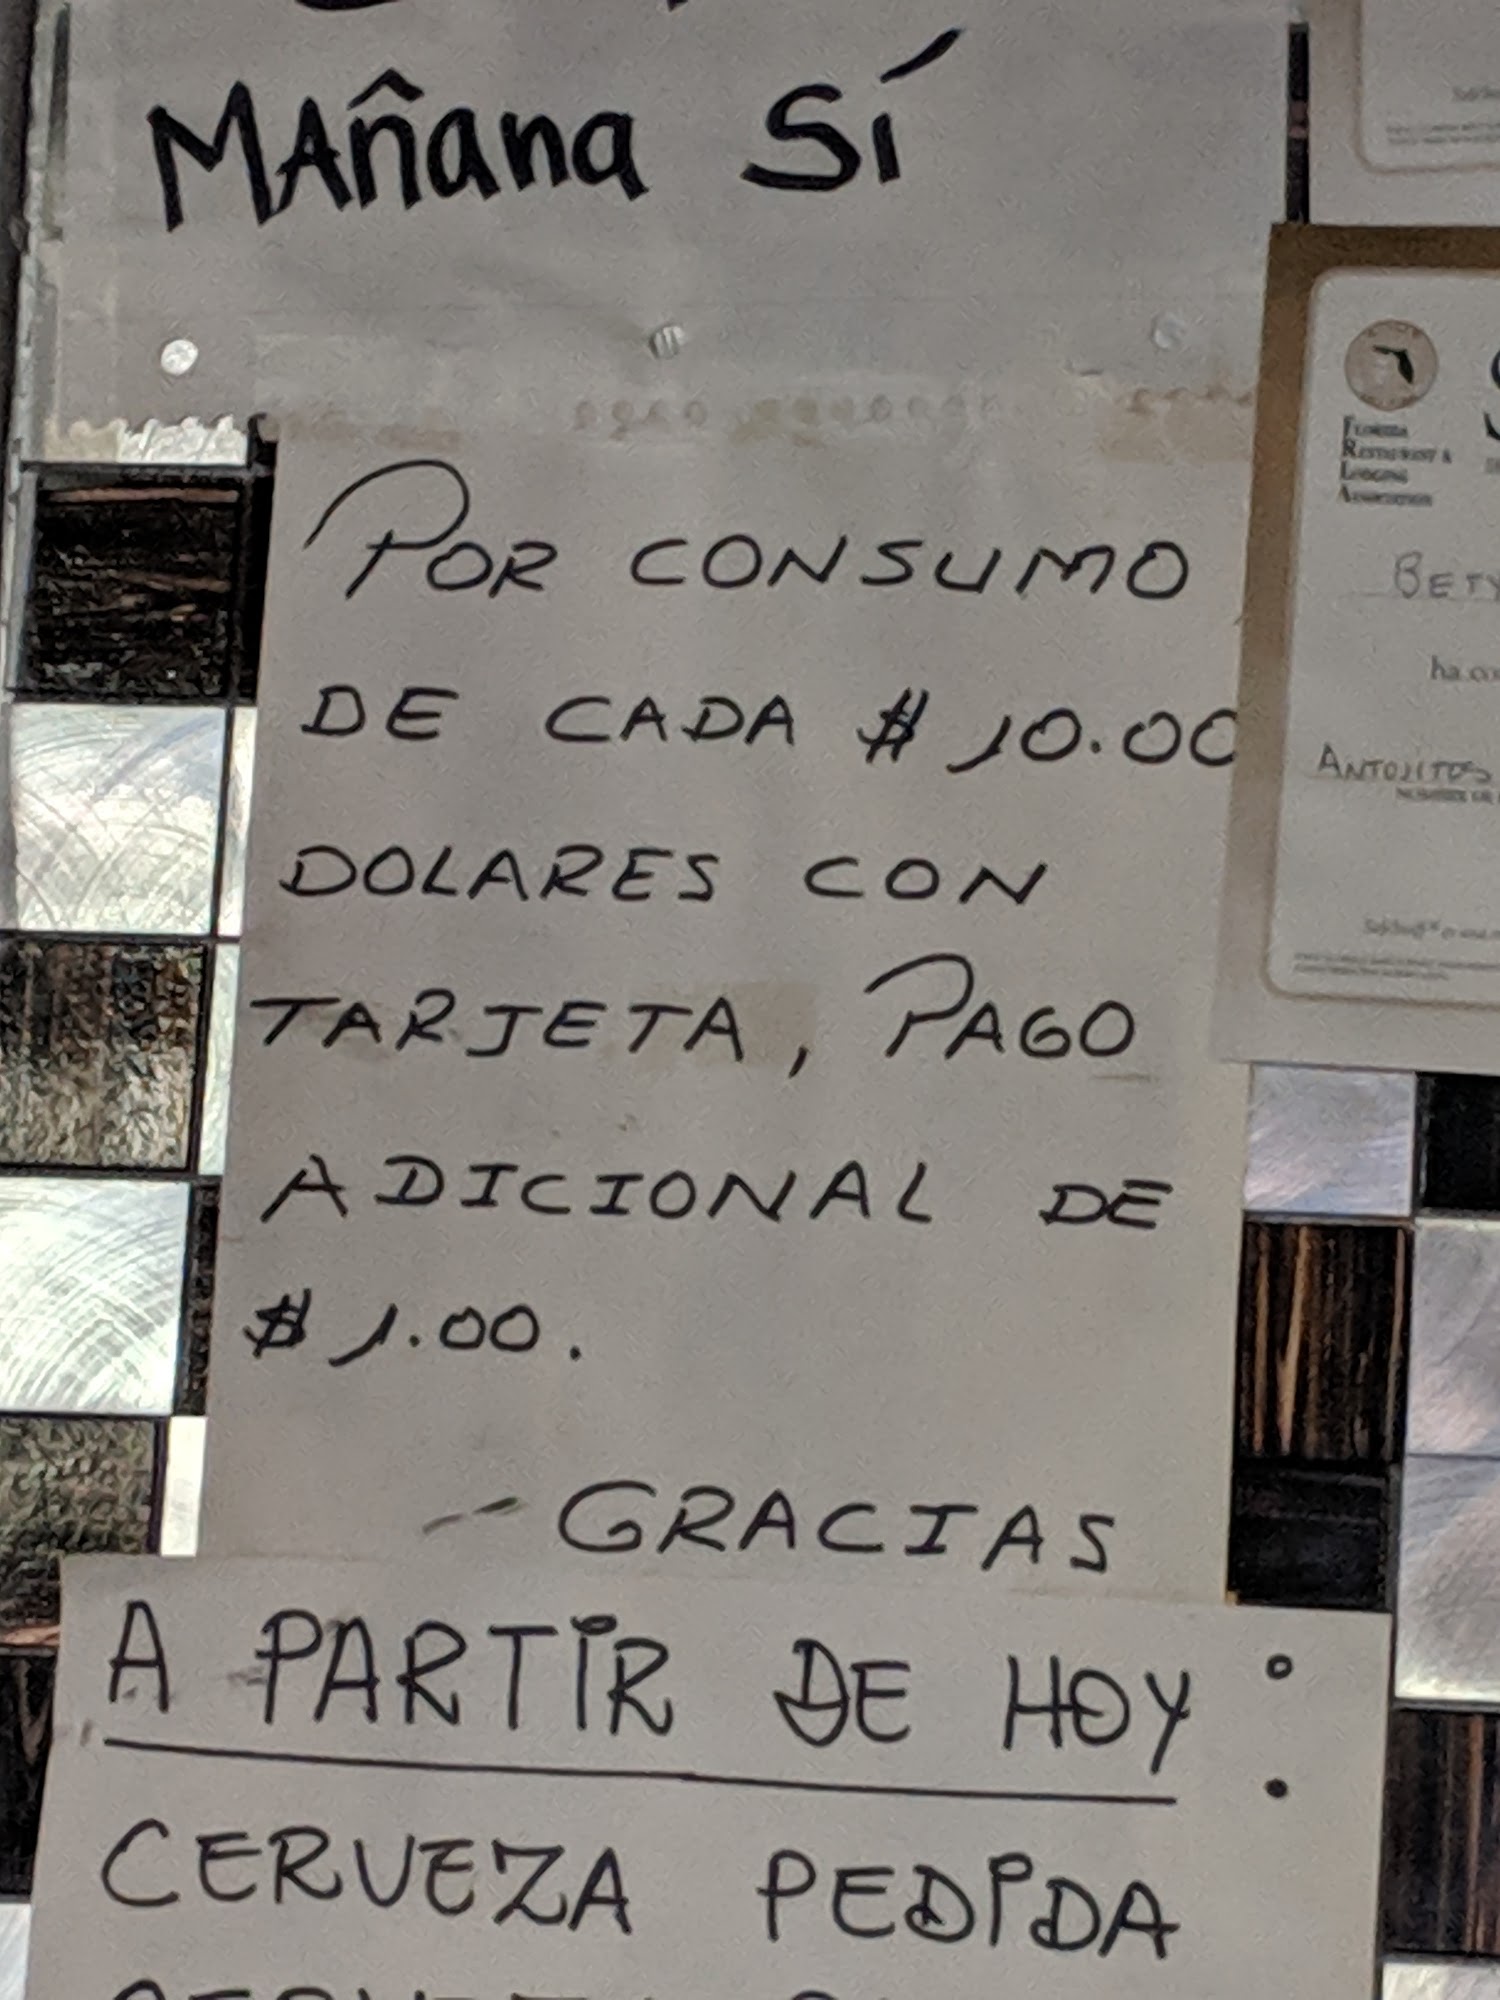 MAñana SÍ
POR CONSUMO
DE CADA $ 10.00
DOLARES CON
TARJETA, PAGO
ADICIONAL DE
$ 1.00.
- GRACIAS
A PARTIR DE HOY:
CERVEZA PEDIDA
FLORIDA
RESTAURANT &
LODGING
ASSOCIATION
BETY
ANTOJITOS